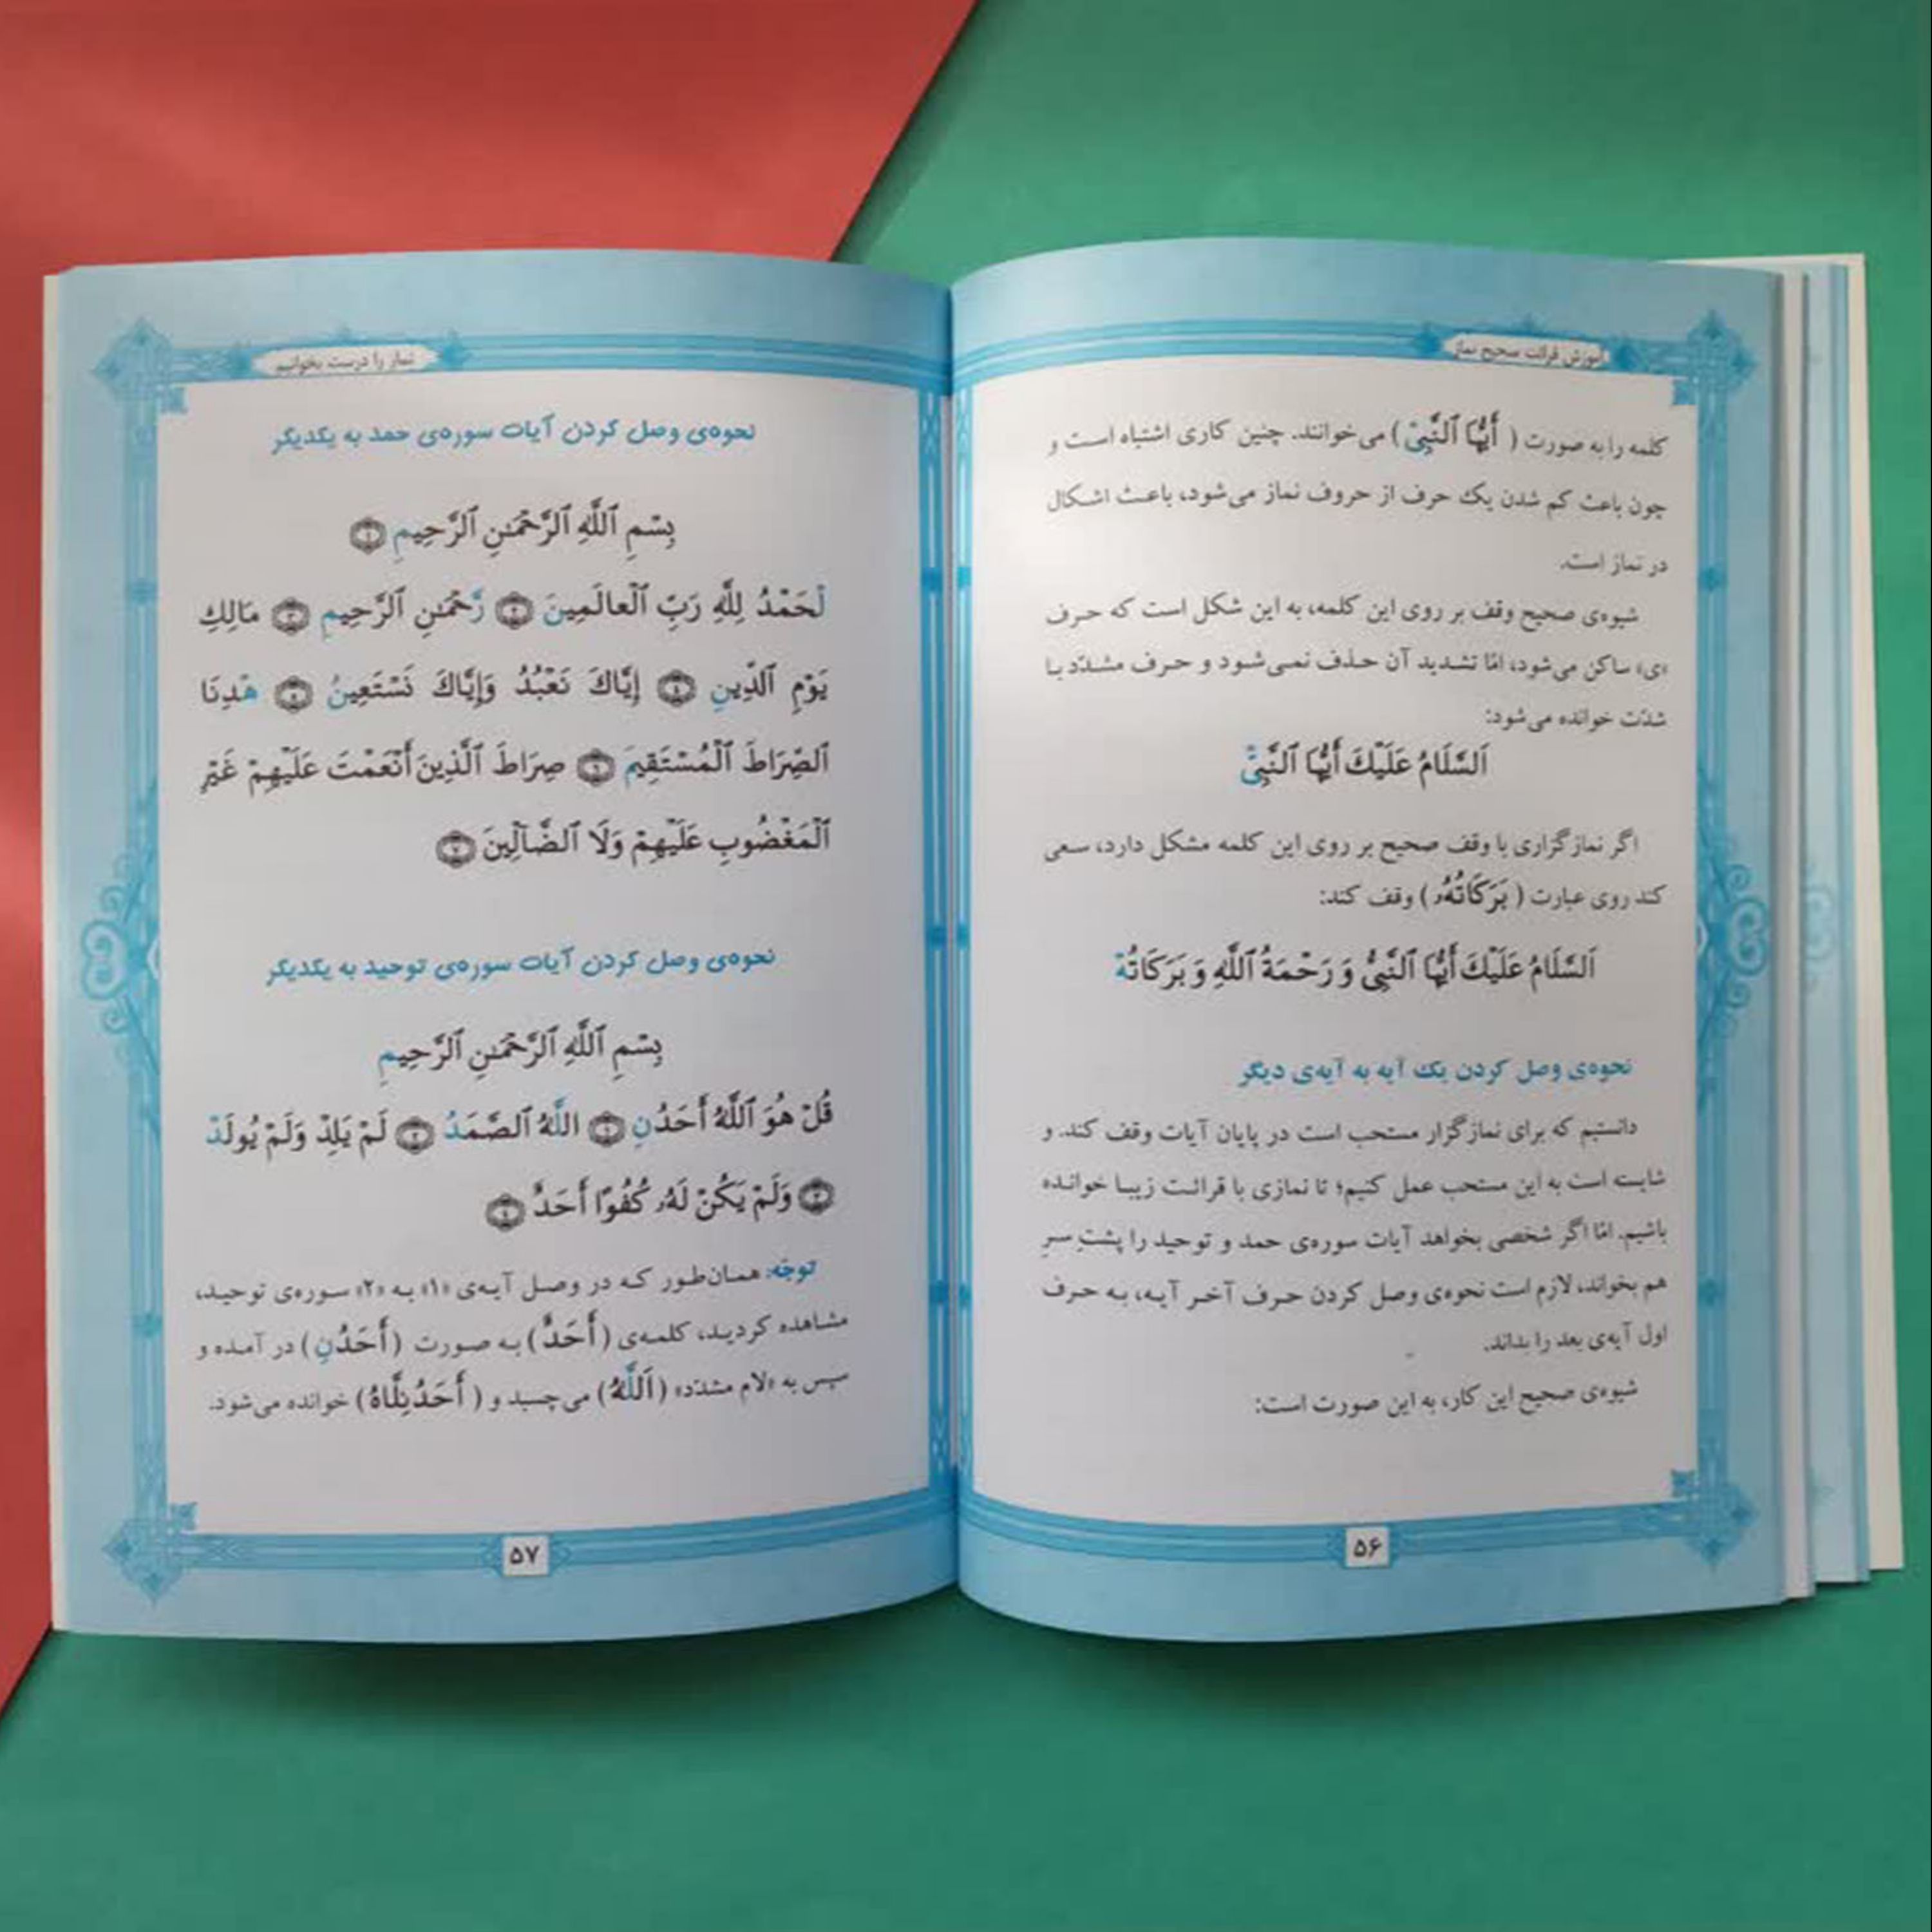 آموزش قرائت صحیح نماز
کلمه را به صورت ( أَيُّهَا ٱلنَّبِيْ ) می‌خوانند. چنین کاری اشتباه است و
چون باعث کم شدن یک حرف از حروف نماز می‌شود، باعث اشکال
در نماز است.
شیوه‌ی صحیح وقف بر روی این کلمه، به این شکل است که حرف
«ی» ساکن می‌شود، امّا تشدید آن حذف نمی‌شود و حرف مشدّد با
شدّت خوانده می‌شود:
اَلسَّلَامُ عَلَيْكَ أَيُّهَا ٱلنَّبِيّْ
اگر نمازگزاری با وقف صحیح بر روی این کلمه مشکل دارد، سعی
کند روی عبارت ( بَرَكَاتُهُۥ ) وقف کند:
اَلسَّلَامُ عَلَيْكَ أَيُّهَا ٱلنَّبِيُّ وَ رَحْمَةُ ٱللَّهِ وَ بَرَكَاتُهْ
نحوه‌ی وصل کردن یک آیه به آیه‌ی دیگر
دانستیم که برای نمازگزار مستحب است در پایان آیات وقف کند. و
شایسته است به این مستحب عمل کنیم؛ تا نمازی با قرائت زیبا خوانده
باشیم. امّا اگر شخصی بخواهد آیات سوره‌ی حمد و توحید را پشتِ سرِ
هم بخواند، لازم است نحوه‌ی وصل کردن حرف آخر آیه، به حرف
اول آیه‌ی بعد را بداند.
شیوه‌ی صحیح این کار، به این صورت است:
۵۶
نماز را درست بخوانیم
نحوه‌ی وصل کردن آیات سوره‌ی حمد به یکدیگر
بِسْمِ ٱللَّهِ ٱلرَّحْمَٰنِ ٱلرَّحِيمِ ۝١
لْحَمْدُ لِلَّهِ رَبِّ ٱلْعالَمِينَ ۝٢ رَّحْمَٰنِ ٱلرَّحِيمِ ۝٣ مَالِكِ
يَوْمِ ٱلدِّينِ ۝٤ إِيَّاكَ نَعْبُدُ وَإِيَّاكَ نَسْتَعِينُ ۝٥ هْدِنَا
ٱلصِّرَاطَ ٱلْمُسْتَقِيمَ ۝٦ صِرَاطَ ٱلَّذِينَ أَنْعَمْتَ عَلَيْهِمْ غَيْرِ
ٱلْمَغْضُوبِ عَلَيْهِمْ وَلَا ٱلضَّآلِّينَ ۝٧
نحوه‌ی وصل کردن آیات سوره‌ی توحید به یکدیگر
بِسْمِ ٱللَّهِ ٱلرَّحْمَٰنِ ٱلرَّحِيمِ
قُلْ هُوَ ٱللَّهُ أَحَدُنِ ۝١ اللَّهُ ٱلصَّمَدُ ۝٢ لَمْ يَلِدْ وَلَمْ يُولَدْ
۝٣ وَلَمْ يَكُنْ لَهُۥ كُفُوًا أَحَدٌ ۝٤
توجّه: همان‌طور که در وصل آیه‌ی «۱» به «۲» سوره‌ی توحید،
مشاهده کردید، کلمه‌ی ( أَحَدٌ ) به صورت ( أَحَدُنِ ) در آمده و
سپس به «لام مشدّد» ( اَللَّهُ ) می‌چسبد و ( أَحَدُنِلَّاهُ ) خوانده می‌شود.
۵۷